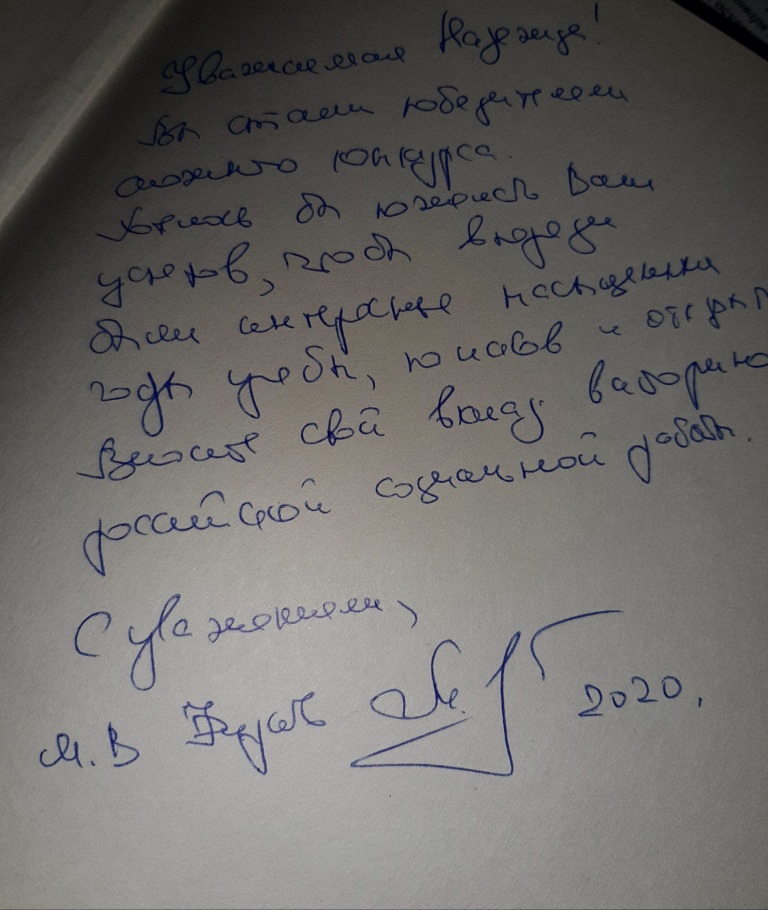 Уважаемая Надежда!
Вы стали победителем
сложного конкурса.
Хотелось бы пожелать Вам
успехов, чтобы впереди
были интересные насыщенные
годы учебы, поисков и открыт
Вносите свой вклад в историю
российской социальной работы.
С уважением,
М. В 2020.